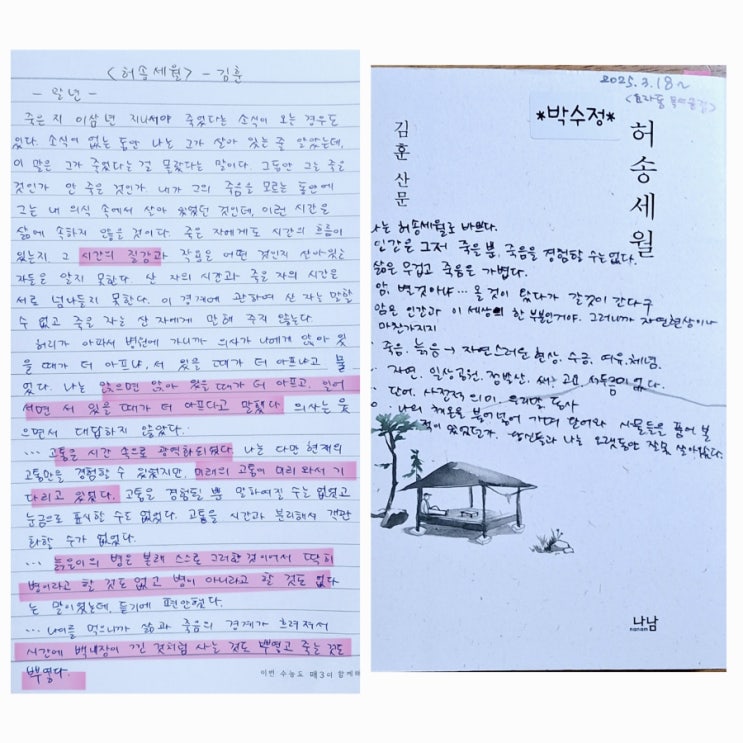 <허송세월> - 김훈
- 말년 -
죽은 지 이삼년 지나서야 죽었다는 소식이 오는 경우도
있다. 소식이 없는 동안 나는 그가 살아 있는 줄 알았는데,
이 말은 그가 죽었다는 걸 몰랐다는 말이다. 그동안 그는 죽은
것인가 안 죽은 것인가. 내가 그의 죽음을 모르는 동안에
그는 내 의식 속에서 살아 있었던 것인데, 이런 시간은
삶에 속하지 않을 것이다. 죽은 자에게도 시간의 흐름이
있는지 그 시간의 질감과 작용은 어떤 것인지 살아있는
자들은 알지 못한다. 산 자의 시간과 죽은 자의 시간은
서로 넘나들지 못한다. 이 경계에 관하여 산 자는 말할
수 없고 죽은 자는 산 자에게 말해 주지 않는다.
허리가 아파서 병원에 가니까 의사가 나에게 앉아 있
을 때가 더 아프냐, 서 있을 때가 더 아프냐고 물
었다. 나는 앉으면 앉아 있을 때가 더 아프고, 일어
서면 서 있을 때가 더 아프다고 말했다. 의사는 웃
으면서 대답하지 않았다.
... 고통은 시간 속으로 광역화되었다. 나는 다만 현재의
고통만을 경험할 수 있었지만, 미래의 고통이 미리 와서 기
다리고 있었다. 고통은 경험될 뿐 말하여질 수는 없었고
눈금으로 표시할 수도 없었다. 고통을 시간과 분리해서 객관
화할 수가 없었다.
... 늙은이의 병은 본래 스스로 그러한 것이어서 딱히
병이라고 할 것도 없고 병이 아니라고 할 것도 없다
는 말이었는데, 듣기에 편안했다.
... 나이를 먹으니까 삶과 죽음의 경계가 흐려져서
시간에 백내장이 낀 것처럼 사는 것도 뿌옇고 죽는 것도
뿌옇다.
이번 수능도 매3이 함께
2025. 3. 18~
*박수정*
허송세월
김훈 산문
나는 허송세월로 바쁘다.
인간은 그저 죽을 뿐, 죽음을 경험할 수는 없다.
삶은 무겁고 죽음은 가볍다.
암, 별것아냐... 올 것이 왔다가 갈것이 간다구
암은 인간과 이 세상의 한 부분인거야. 그러니까 자연현상이나
마찬가지지
· 죽음, 늙음 → 자연스러운 현상, 수긍, 여유, 체념.
· 자연, 일상공원, 정박산, 새? 고요 서두름이 없다.
· 단어, 사전적 의미, 동사
나의 체온을 불어넣어 가며 단어와 사물들을 품어 본
적이 있었던가. 당신들과 나는 오랫동안 잘못 살아왔다.
나남
nanam